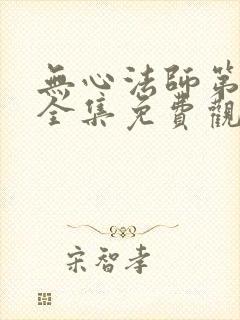 無心法師第
全集免費觀
宋智孝